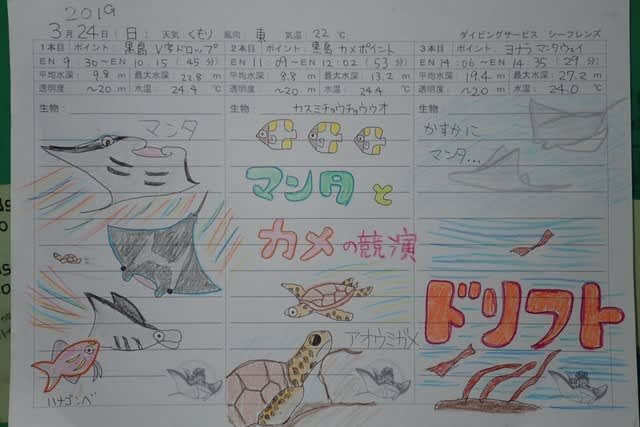 2019
3月24日(日) 天気:くもり 風向 東 気温:22℃ ダイビングサービス シーフレンズ
1本目 ポイント: 黒島 V字ドロップ
EN 9:30〜EN 10:15 (45分)
平均水深: 9.8 m 最大水深: 22.8 m
透明度 〜20 m 水温: 24.4 ℃
生物:
マンタ
ハナゴンベ
2本目 ポイント: 黒島 カメポイント
EN 11:09〜EN 12:02 (53分)
平均水深: 8.8 m 最大水深: 13.2 m
透明度 〜20 m 水温: 24.4 ℃
生物:
カスミチョウチョウウオ
マンタと
カメの競演
アオウミガメ
3本目 ポイント: ヨナラ マンタウェイ
EN 14:06〜EN 14:35 (29分)
平均水深: 19.4 m 最大水深: 27.2 m
透明度 〜20 m 水温: 24.0 ℃
生物
かすかに
マンタ...
ドリフト